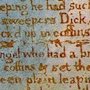 eeping he had such
sweepers Dick,
ck'd up in coffins
ngel who had a bri
coffins & set the
een plain leaping